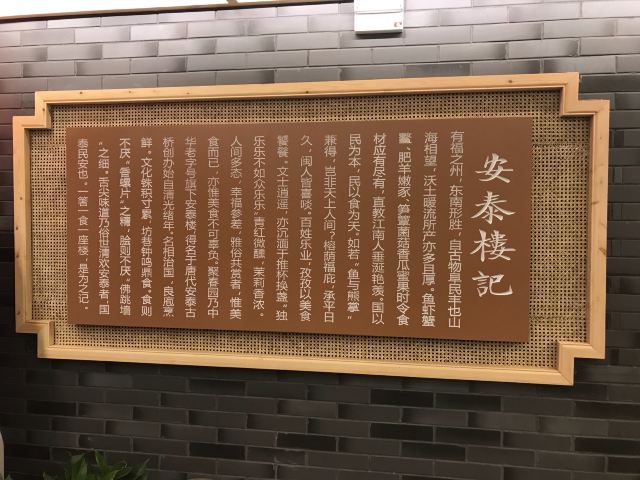 安泰樓記
有福之州，东南形胜，自古物阜民丰也山
海相望，沃土暖流所产亦多且厚。鱼虾蟹
鲎、肥羊嫩豕、笋蕈菌菇香瓜蜜果时令食
材应有尽有，直教江南人垂涎艳羡。国以
民为本，民以食为天。如若“鱼与熊掌”
兼得，岂非天上人间？榕荫福庇，承平日
久，闽人皆喜啖。百姓乐业，孜孜以美食
饕餮。文士逍遥，亦沉湎于推杯换盏。“独
乐乐不如众乐乐”青红微醺，茉莉香浓。
人间多态，幸福参差，雅俗并赏者，惟美
食而已，亦惟美食不可辜负。聚春园乃中
华老字号旗下安泰楼，得名于唐代安泰古
桥创办始自清光绪年，名相合国，良庖烹
鲜。文化铢积寸累，坊巷钟鸣鼎食。食则
不厌“香螺片”之精，脍则不厌“佛跳墙
”之细。舌尖味道乃俗世清欢安泰者，国
泰民安也。一箸一食一座楼，是为之记。